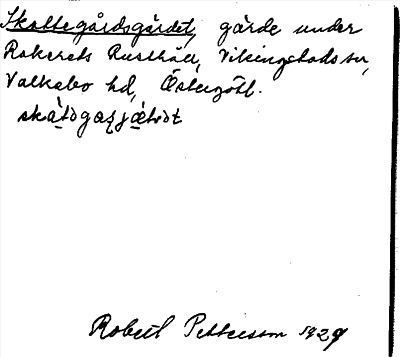 Skattegårdsgärdet, gärde under
Rakereds Rusthåll, Vikingstads sn,
Valkebo hd, Östergötl.
Robert Petterson 1929